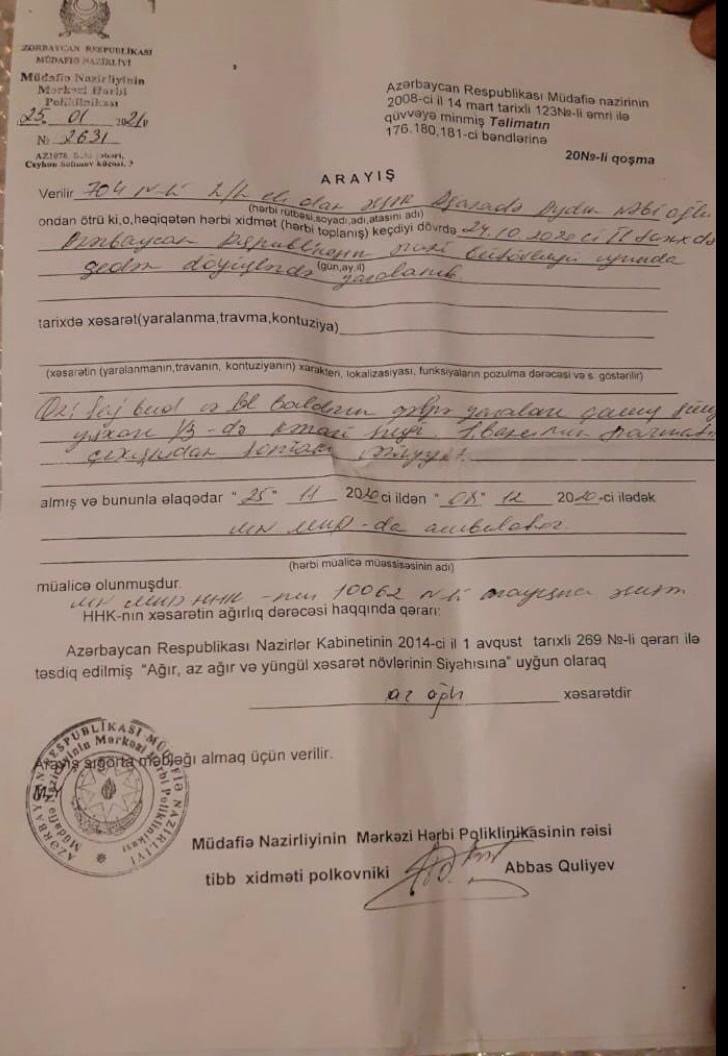 AZƏRBAYCAN RESPUBLİKASI
MÜDAFİƏ NAZİRLİYİ
Müdafiə Nazirliyinin
Mərkəzi Hərbi
Poliklinikası
25. 01 2021
№ 2631
AZ1078, Bakı şəhəri,
Ceyhun Səlimov küçəsi, 3
Azərbaycan Respublikası Müdafiə nazirinin
2008-ci il 14 mart tarixli 123№-li əmri ilə
qüvvəyə minmiş Təlimatın
176.180,181-ci bəndlərinə
20№-li qoşma
ARAYIŞ
Verilir 704 N-li h/h Aydın Nəbi oğlu
(hərbi rütbəsi,soyadı,adı,atasını adı)
ondan ötrü ki,o,həqiqətən hərbi xidmət (hərbi toplanış) keçdiyi dövrdə 24.10.2020 ci il tarixdə
Azərbaycan Respublikasının ərazi bütövlüyü uğrunda
gedən döyüşlərdə yaralanıb
(gün,ay,il)
tarixdə xəsarət(yaralanma,travma,kontuziya)
(xəsarətin (yaralanmanın,travanın, kontuziyanın) xarakteri, lokalizasiyası, funksiyaların pozulma dərəcəsi və s. göstərilir)
Sağ bud və sol baldırın qəlpə yaraları
yuxarı 1/3-də
almış və bununla əlaqədar "25" 11 2020 ci ildən "08" 12 2020-ci ilədək
MN MHP-da ambulator
(hərbi müalicə müəssisəsinin adı)
müalicə olunmuşdur.
MN HHK-nın 10062 N-li arayışına əsasən
HHK-nın xəsarətin ağırlıq dərəcəsi haqqında qərarı:
Azərbaycan Respublikası Nazirlər Kabinetinin 2014-ci il 1 avqust tarixli 269 №-li qərarı ilə
təsdiq edilmiş “Ağır, az ağır və yüngül xəsarət növlərinin Siyahısına” uyğun olaraq
az ağır xəsarətdir
Arayış sığorta məbləği almaq üçün verilir.
M.Y
AZƏRBAYCAN RESPUBLİKASI MÜDAFİƏ NAZİRLİYİ
Müdafiə Nazirliyinin Mərkəzi Hərbi Poliklinikası
Müdafiə Nazirliyinin Mərkəzi Hərbi Poliklinikasının rəisi
tibb xidməti polkovniki Abbas Quliyev